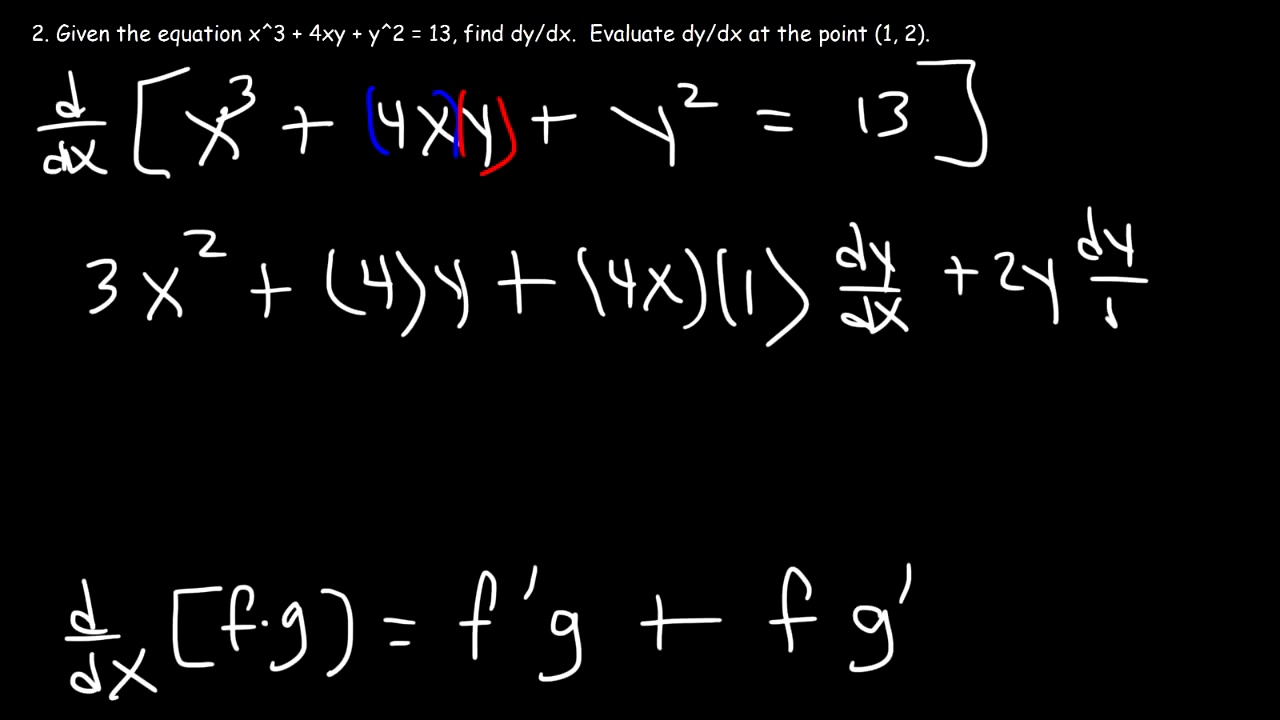 2. Given the equation x^3 + 4xy + y^2 = 13, find dy/dx. Evaluate dy/dx at the point (1, 2).
d/dx [x³ + (4x)(y) + y² = 13]
3x² + (4)y + (4x)(1) dy/dx + 2y dy/
d/dx [f·g) = f'g + fg'